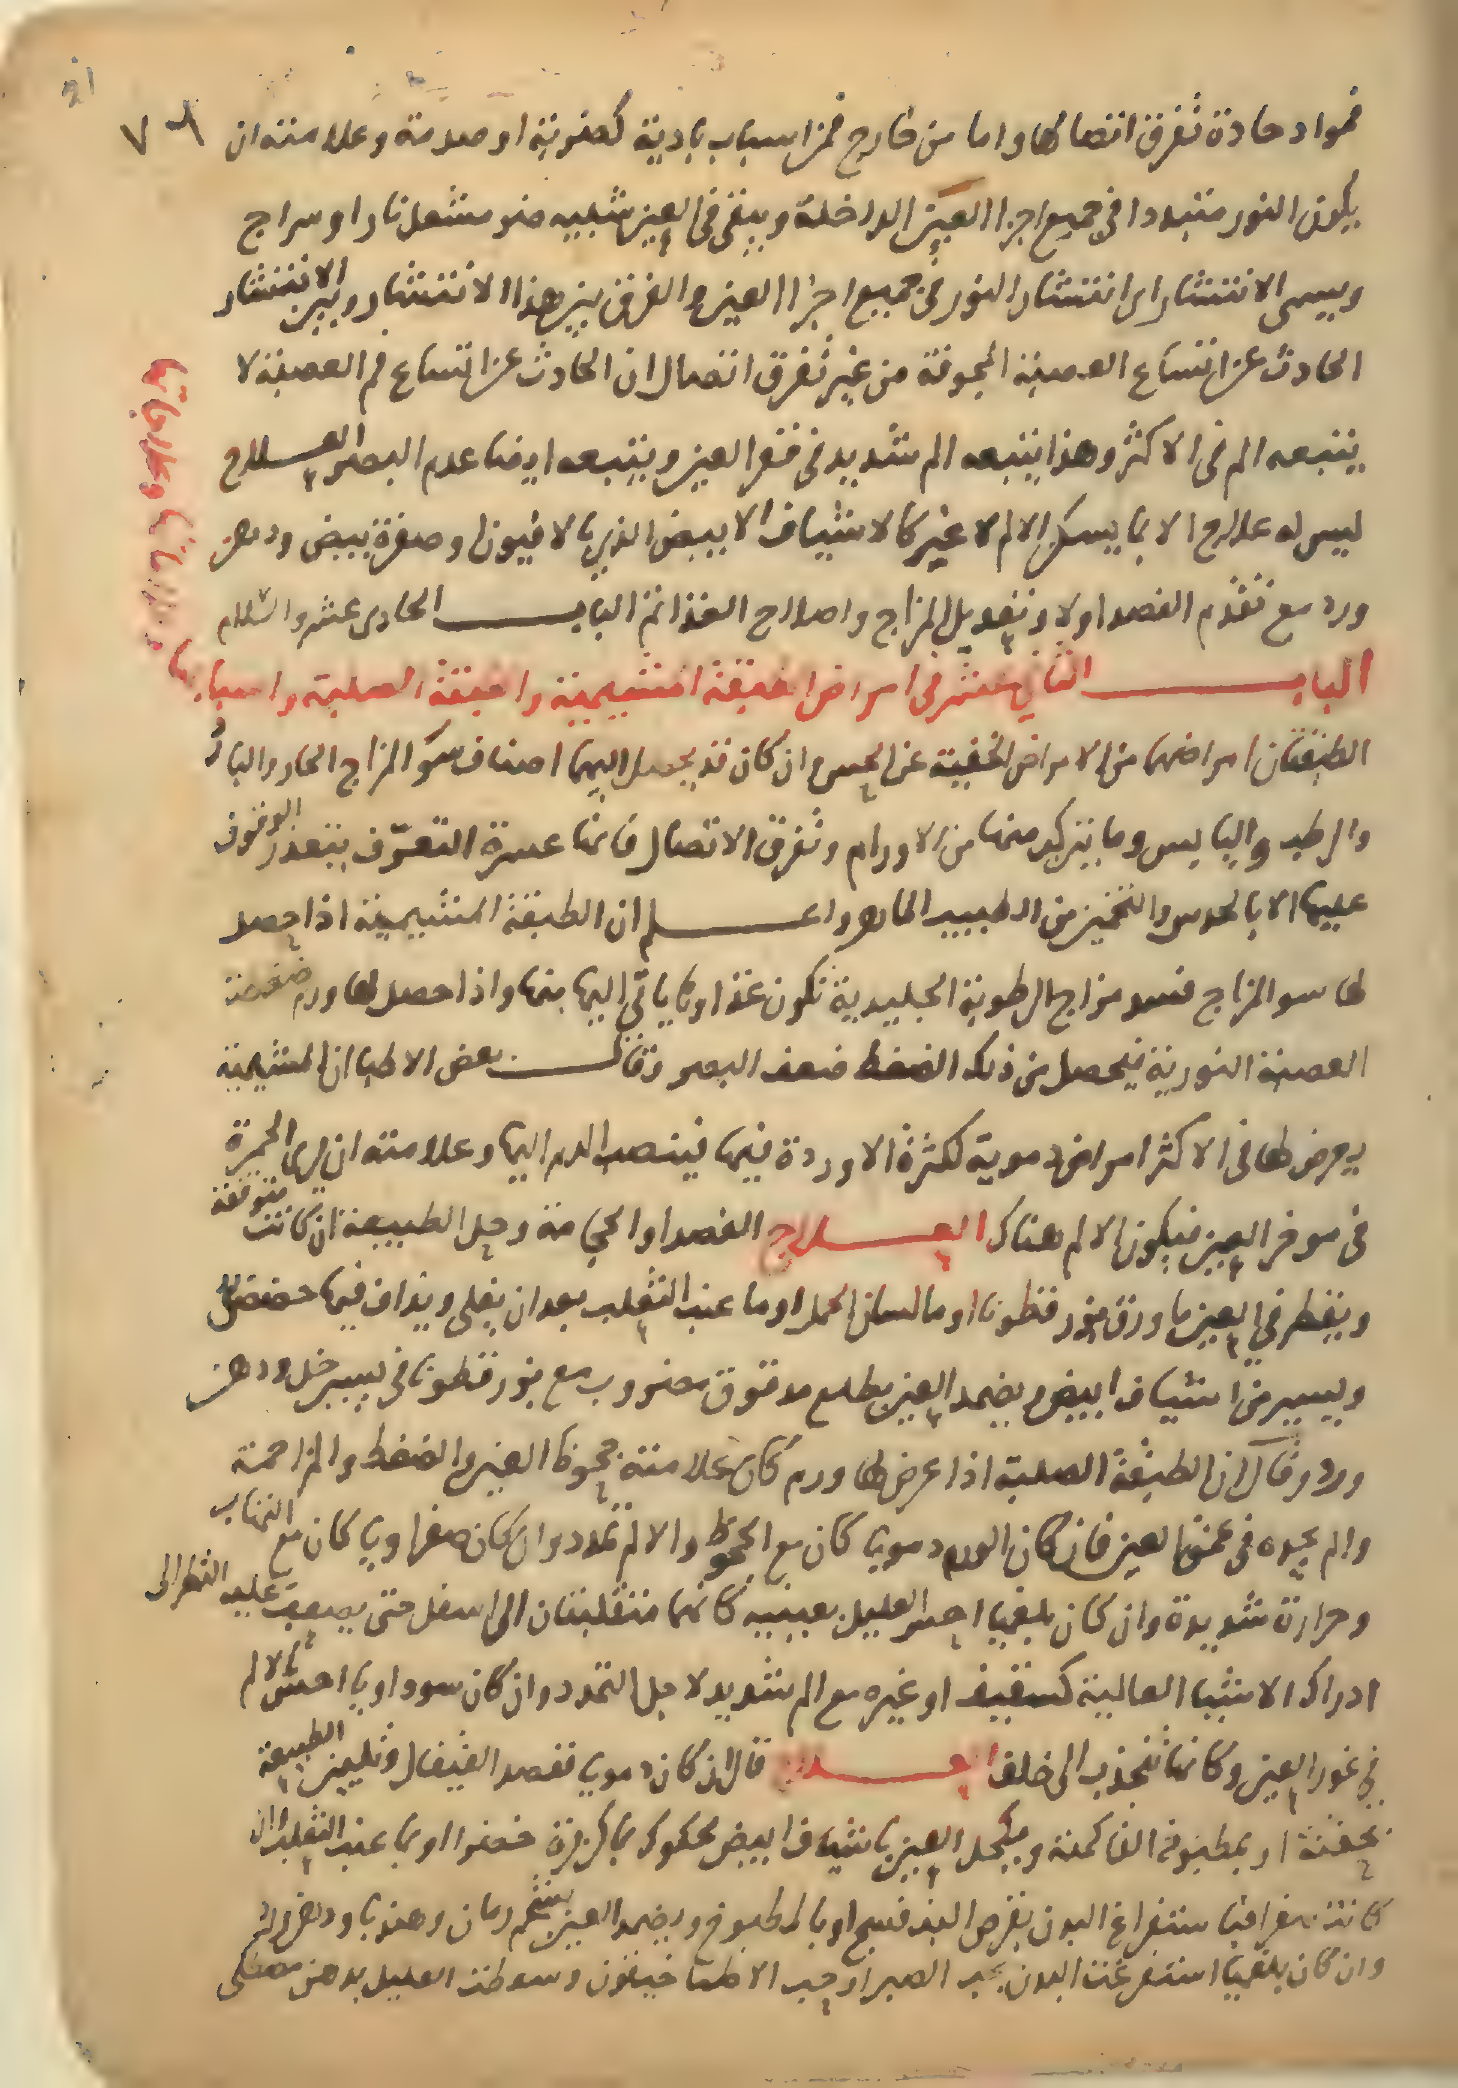 فمواد حادة تفرق اتصالها واما من خارج فمن اسباب بادية كضربة او صدمة وعلامته ان
يكون النور متبددا في جميع اجزا العين الداخلة ويبقى في العين شبيه ضو مشعل نار او سراج
ويسمى الانتشار اي انتشار النور في جميع اجزا العين والفرق بين هذا الانتشار وبين الانتشار
الحادث عن اتساع العصبة المجوفة من غير تفرق اتصال ان الحادث عن اتساع فم العصبة لا
يتبعه الم في الاكثر وهذا يتبعه الم شديد في قعر العين ويتبعه ايضا عدم البصر العلاج
ليس له علاج الا بما يسكن الالم لا غير كالاشياف الابيض الذي بالافيون وصفرة بيض ودهن
ورد مع تقدم الفصد اولا وتعديل المزاج واصلاح الغذا تم الباب الحادي عشر والسلام
الباب الثاني عشر في امراض الطبقة المشيمية والطبقة الصلبة واسبابها
الطبقتان امراضهما من الامراض الخفية عن الحس وان كان قد يحصل اليهما اصناف سو المزاج الحار والبارد
والرطب واليابس وما يتركب منها من الاورام وتفرق الاتصال فانها عسرة التعرّف يتعذر الوقوف
عليها الا بالحدس والتخمين من الطبيب الماهر واعلم ان الطبقة المشيمية اذا حصل
لها سو المزاج فسد مزاج الرطوبة الجليدية لكون غذاوها ياتي اليها منها واذا حصل لها ورم ضغطت
العصبة النورية فيحصل من ذلك الضغط ضعف البصر وقال بعض الاطبا ان المشيمية
يعرض لها في الاكثر امراض دموية لكثرة الاوردة فيها فينصب الدم اليها وعلامته ان يرى الحمرة
في موخر العين فيكون الالم هناك العلاج الفصد او الحجامة وحل الطبيعة ان كانت متوقفة
ويقطر في العين ما ورق بزر قطونا او ما لسان الحمل او ما عنب الثعلب بعد ان يغلى ويداف فيها حضض
ويسير من اشياف ابيض ويضمد العين بطلع مدقوق مضروب مع بزر قطونا في يسير خل ودهن
ورد وقال ان الطبقة الصلبة اذا عرض لها ورم كان علامته جحوظ العين والضغط والمزاحمة
والم يجده في عمق العين فان كان الورم دمويا كان مع الجحوظ والالم تمدد وان كان صفراويا كان مع التهاب
وحرارة شديدة وان كان بلغميا احس العليل بعينيه كانهما متقلبتان الى اسفل حتى يصعب عليه النظر الى
ادراك الاشيا العالية كسقيف او غيره مع الم شديد لاجل التمدد وان كان سوداويا احس بالالم
في غور العين وكانها تنجذب الى خلف العلاج قال ان كان دمويا تفصد القيفال وتليين الطبيعة
بحقنة او بمطبوخ الفاكهة ويكحل العين باشياف ابيض محكوك بما كزبرة خضرا او بما عنب الثعلب وان
كانت صفرا فباستفراغ البدن بقرص البنفسج او بالمطبوخ ويضمد العين بشحم رمان وهندبا ودهن ورد
وان كان بلغميا استفرغت البدن بحب الصبر او حب الاصطماخيقون وسعطت العليل بدهن مصطكى